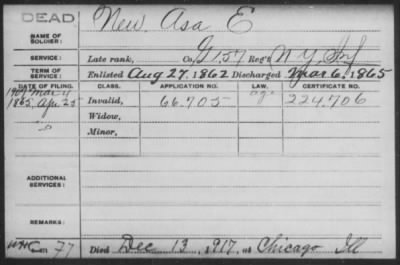 DEAD
New Asa E
NAME OF
SOLDIER:
SERVICE: Late rank, Co. G 157 Reg't N Y Inf
TERM OF
SERVICE: Enlisted Aug 27, 1862 Discharged Mar 6, 1865
DATE OF FILING. CLASS. APPLICATION NO. LAW. CERTIFICATE NO.
1865, Apr. 25 Invalid, 66.705 224,706
Widow,
Minor,
ADDITIONAL
SERVICES:
REMARKS:
77 Died Dec 13, 1917, at Chicago Ill